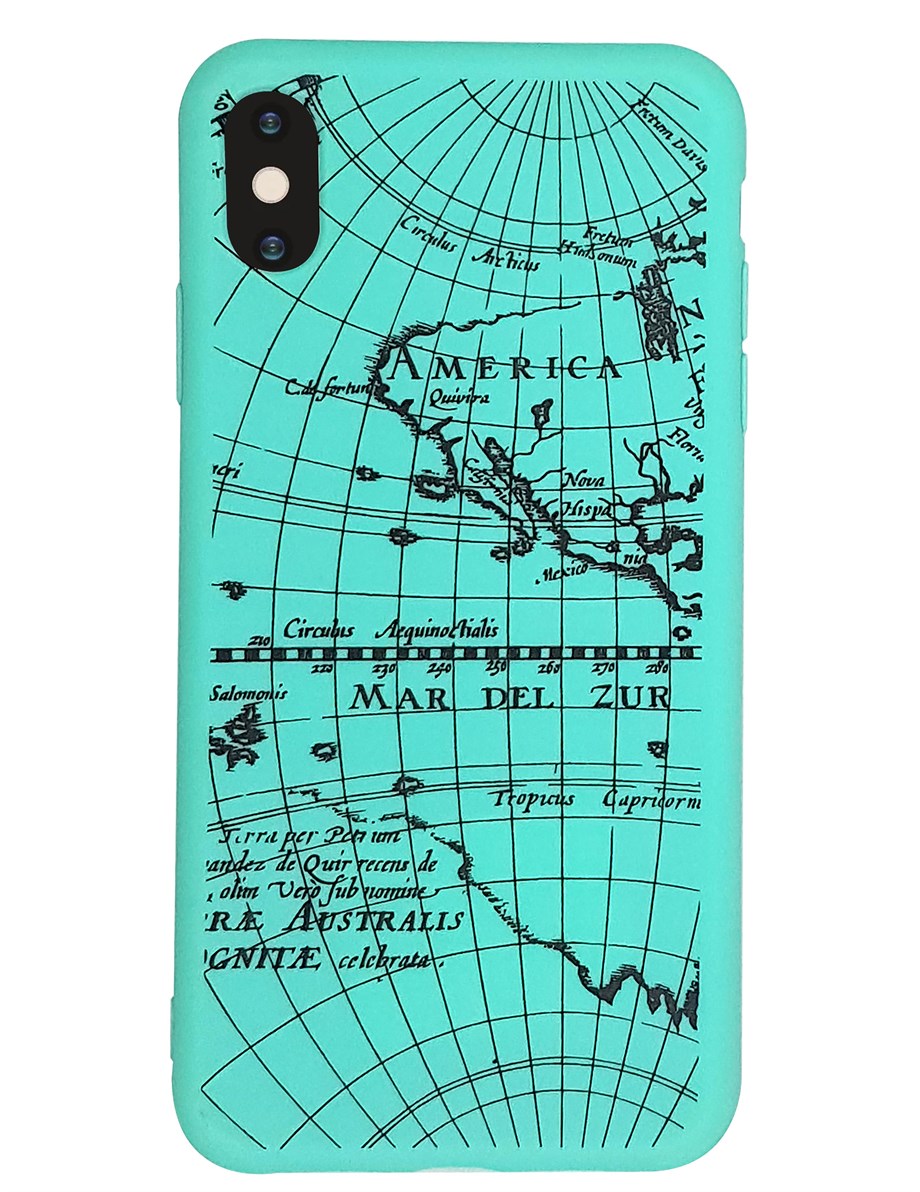 Fretum Davis
Circulus Arcticus
Fretum
Hudsonum
AMERICA
C. de fortun
Quivira
Florid
Californi
Nova
Hispa
nia
Mexico
Circulus Aequinoctialis
210 220 230 240 250 260 270 280
Salomonis
MAR DEL ZUR
Tropicus Capricorni
Terra per Petrum
andez de Quir recens de
olim Vero sub nomine
RÆ AUSTRALIS
OGNITÆ celebrata.